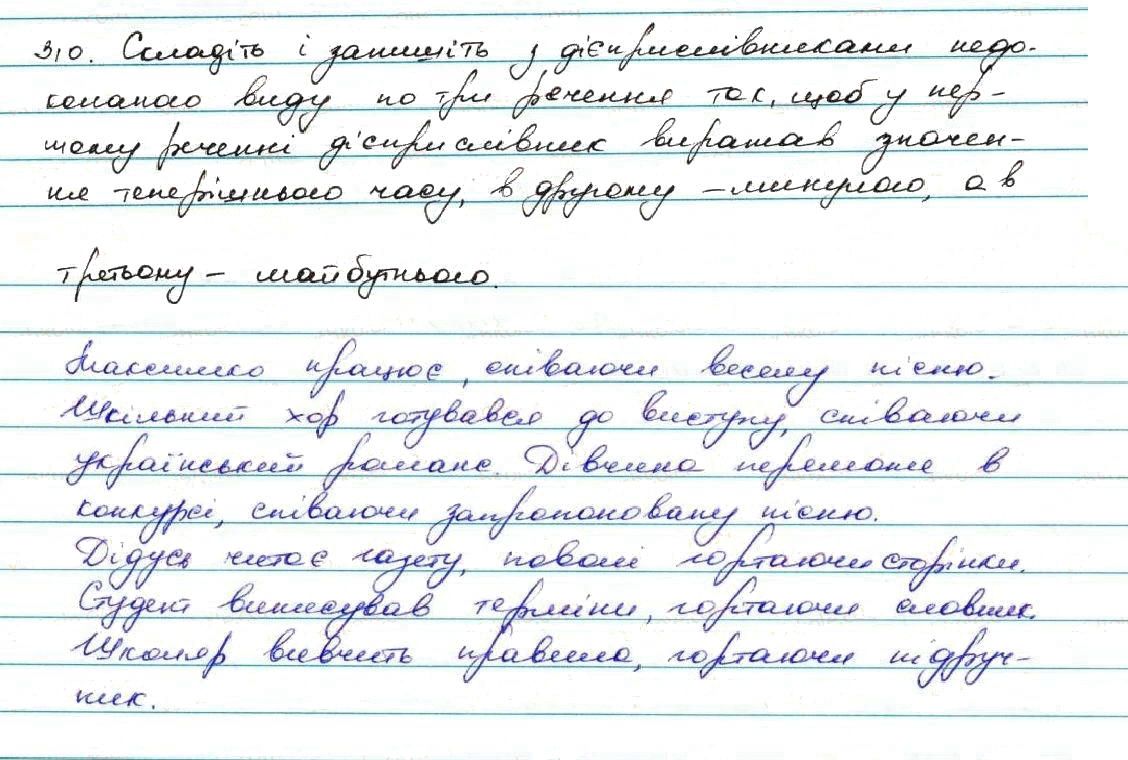 310. Складіть і запишіть з дієприслівниками недо-
конаного виду по три речення так, щоб у пер-
шому реченні дієприслівник виражав значен-
ня теперішнього часу, в другому – минулого, а в
третьому – майбутнього.
Максимко працює, співаючи веселу пісню.
Шкільний хор готувався до виступу, співаючи
український романс. Дівчина переможе в
конкурсі, співаючи запропоновану пісню.
Дідусь читає газету, поволі гортаючи сторінки.
Студент виписував терміни, гортаючи словник.
Школяр вивчить правила, гортаючи підруч-
ник.